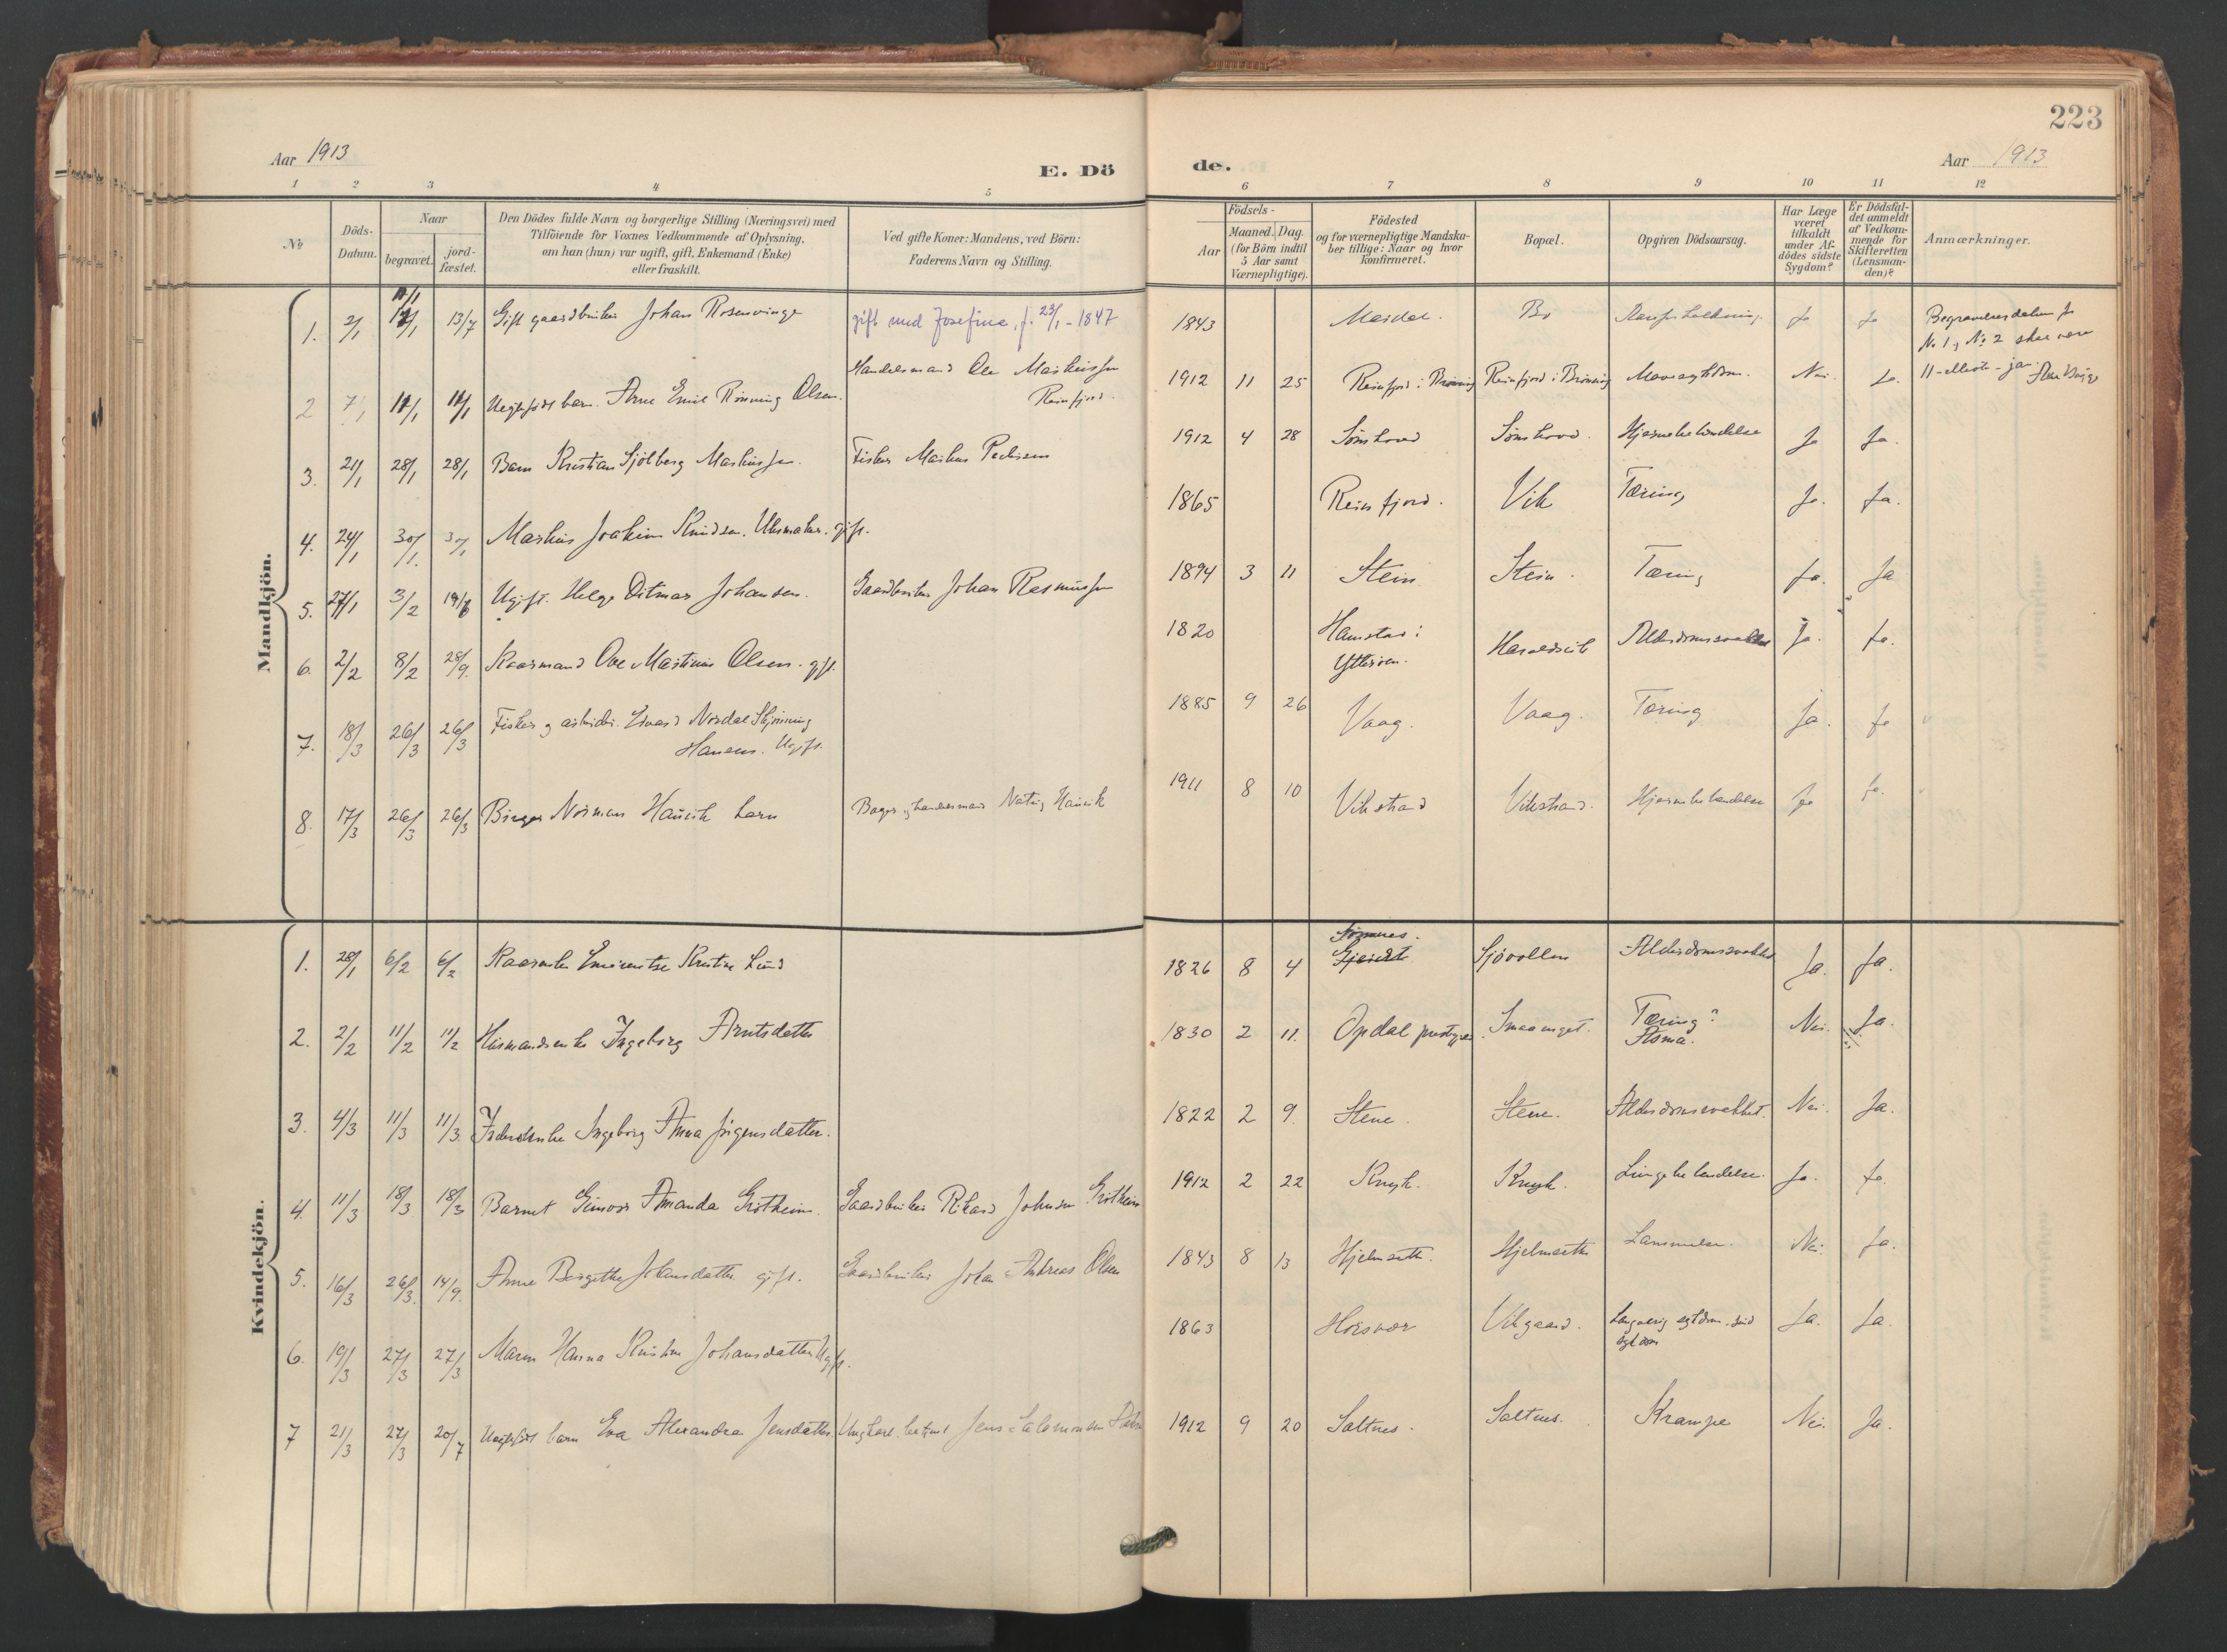 223
Aar 1913
E. Dö
de.
Aar 1913
1 2 3 4 5 6 7 8 9 10 11 12
No
Döds-
Datum.
Naar
begravet.
jord-
fæstet.
Den Dödes fulde Navn og borgerlige Stilling (Næringsvei) med
Tilföiende for Voxnes Vedkommende af Oplysning,
om han (hun) var ugift, gift, Enkemand (Enke)
eller fraskilt.
Ved gifte Koner: Mandens, ved Börn:
Faderens Navn og Stilling.
Födsels-
Aar
Maaned. Dag.
(for Börn indtil
5 Aar samt
Værnepligtige).
Födested
og for værnepligtige Mandska-
ber tillige: Naar og hvor
konfirmeret.
Bopæl.
Opgiven Dödsaarsag.
Har Læge
været
tilkaldt
under Af-
dödes sidste
Sygdom?
Er Dödsfal-
det anmeldt
af Vedkom-
mende for
Skifteretten
(Lensman-
den)?
Anmærkninger.
Mandkjön.
1. 2/1 11/1 13/7 Gift gaardbruker Johan Rosenvinge gift med Josefine, f. 23/1 - 1847 1843 Meidal. Bø Ja Ja Begravelsesdatum for
No 1 og No 2 skal være
11-ellevte - jan.
2 7/1 11/1 11/1 Uegtefødt barn. Arne Emil Rønning Olsen. Handelsmand Ole Markussen
Reinfjord. 1912 11 25 Reinfjord i Brønnøy Reinfjord i Brønnøy Mavesygdom. Nei. Ja.
3. 21/1 28/1 28/1 Barn Kristian Sjølberg Markussen. Fisker Markus Pedersen 1912 4 28 Sømhovd Sømhovd. Hjernebetændelse Ja Ja.
4. 24/1 30/1 30/1 Markus Joakim Knudsen. Uhrmaker. gift. 1865 Reinfjord. Vik Tæring Ja. Ja.
5. 27/1 3/2 19/7 Ugift. Helge Ditmar Johansen. Gaardbruker Johan Rasmussen 1894 3 11 Stein Stein. Tæring Ja. Ja
6. 2/2 8/2 28/9. Kaarmand Ole Martinus Olsen. gift. 1820 Hamstad i
Ytterøen. Haraldsvik Alderdomssvakhet Ja. Ja.
7. 18/3 26/3 26/3 Fisker og arbeider. Edvard Nordal Skjønning
Hansen. Ugift. 1885 9 26 Vaag. Vaag. Tæring Ja. Ja
8. 17/3 26/3 26/3 Birger Norman Hauvik barn Bager og handelsmand Hauvik 1911 8 10 Vikstrand Vikstrand. Hjernebetændelse Ja Ja.
Kvindekjön.
1. 28/1 6/2 6/2 Kaarenke Emerentse Kristine Lund 1826 8 4 Sømnes. Sjøvollen Alderdomssvakhet Ja. Ja.
2. 2/2 11/2 11/2 Husmandsenke Ingeborg Arntsdatter 1830 2 11. Opdal prestegj. Smaaenget. Tæring?
Astma. Nei. Ja.
3. 4/3 11/3 11/3. Føderaadsenke Ingeborg Anna Jørgensdatter. 1822 2 9. Stene. Stene. Alderdomssvakhet. Nei. Ja.
4. 11/3 18/3 18/3 Barnet Gunvor Amanda Grøtheim. Gaardbruker Rikard Johnsen Grøtheim 1912 2 22 Kvigk. Kvigk. Lungebetændelse. Ja. Ja.
5. 16/3 26/3. 14/9. Anne Birgitte Johansdatter gift. Gaardbruker Johan Andreas Olsen 1843 8 13 Hjelmseth. Hjelmseth Lammelse. Nei. Ja.
6. 19/3 27/3 27/3 Maren Hanna Kristine Johansdatter Ugift. 1863 Horsvær Vikgaard. Langvarig sygdom. Ja. Ja.
7 21/3 27/3 20/7 Uegtefødt barn Eva Alexandra Jensdatter. Ungkarl Jens Salomonsen 1912 9 20 Saltnes. Saltnes. Krampe Nei. Ja.